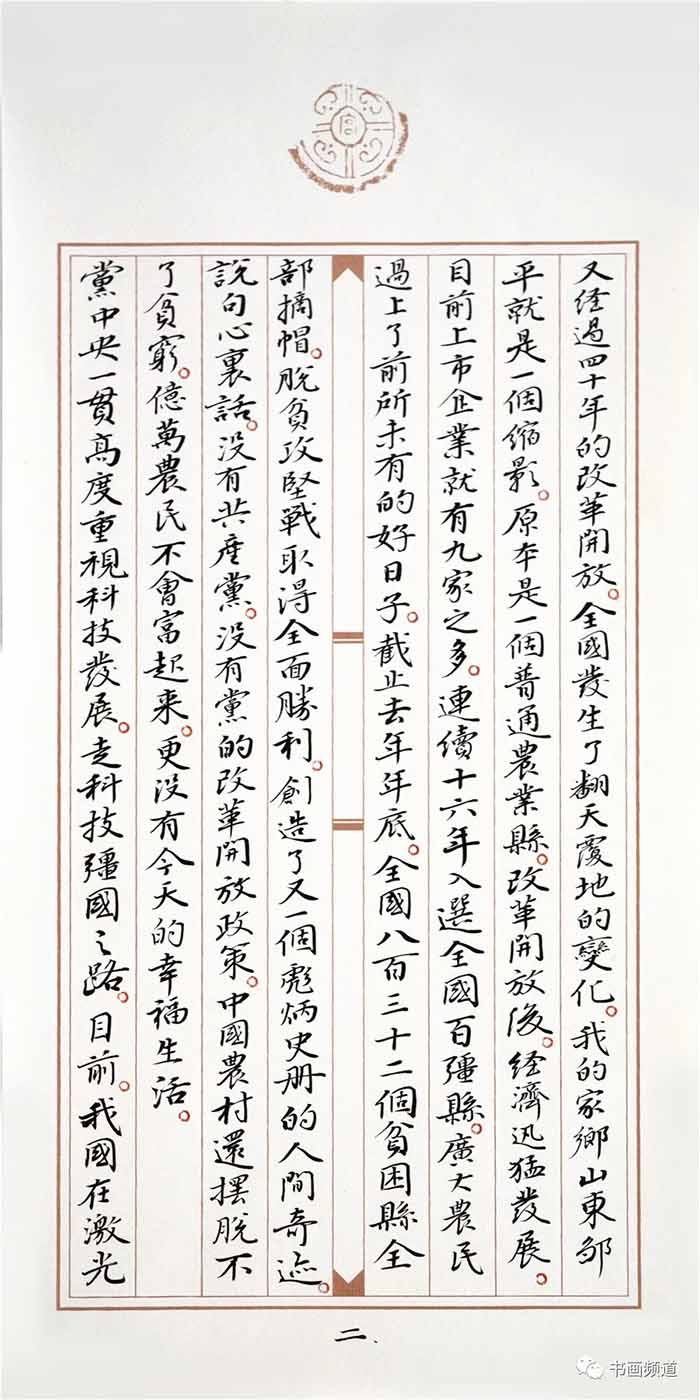 宫
又経過四十年的改革開放。全國發生了翻天覆地的變化。我的家鄉山東鄒
平就是一個缩影。原本是一個普通農業縣。改革開放後。経濟迅猛發展。
目前上市企業就有九家之多。連續十六年入選全國百彊縣。廣大農民
過上了前所未有的好日子。截止去年年底。全國八百三十二個貧困縣全
部摘帽。脱貧攻堅戰取得全面勝利。創造了又一個彪炳史册的人間奇迹。
說句心裏話。没有共産黨。没有黨的改革開放政策。中國農村還擺脱不
了貧窮。億萬農民不會富起来。更没有今天的幸福生活。
黨中央一贯高度重視科技發展。走科技彊國之路。目前。我國在激光
二.
书画频道